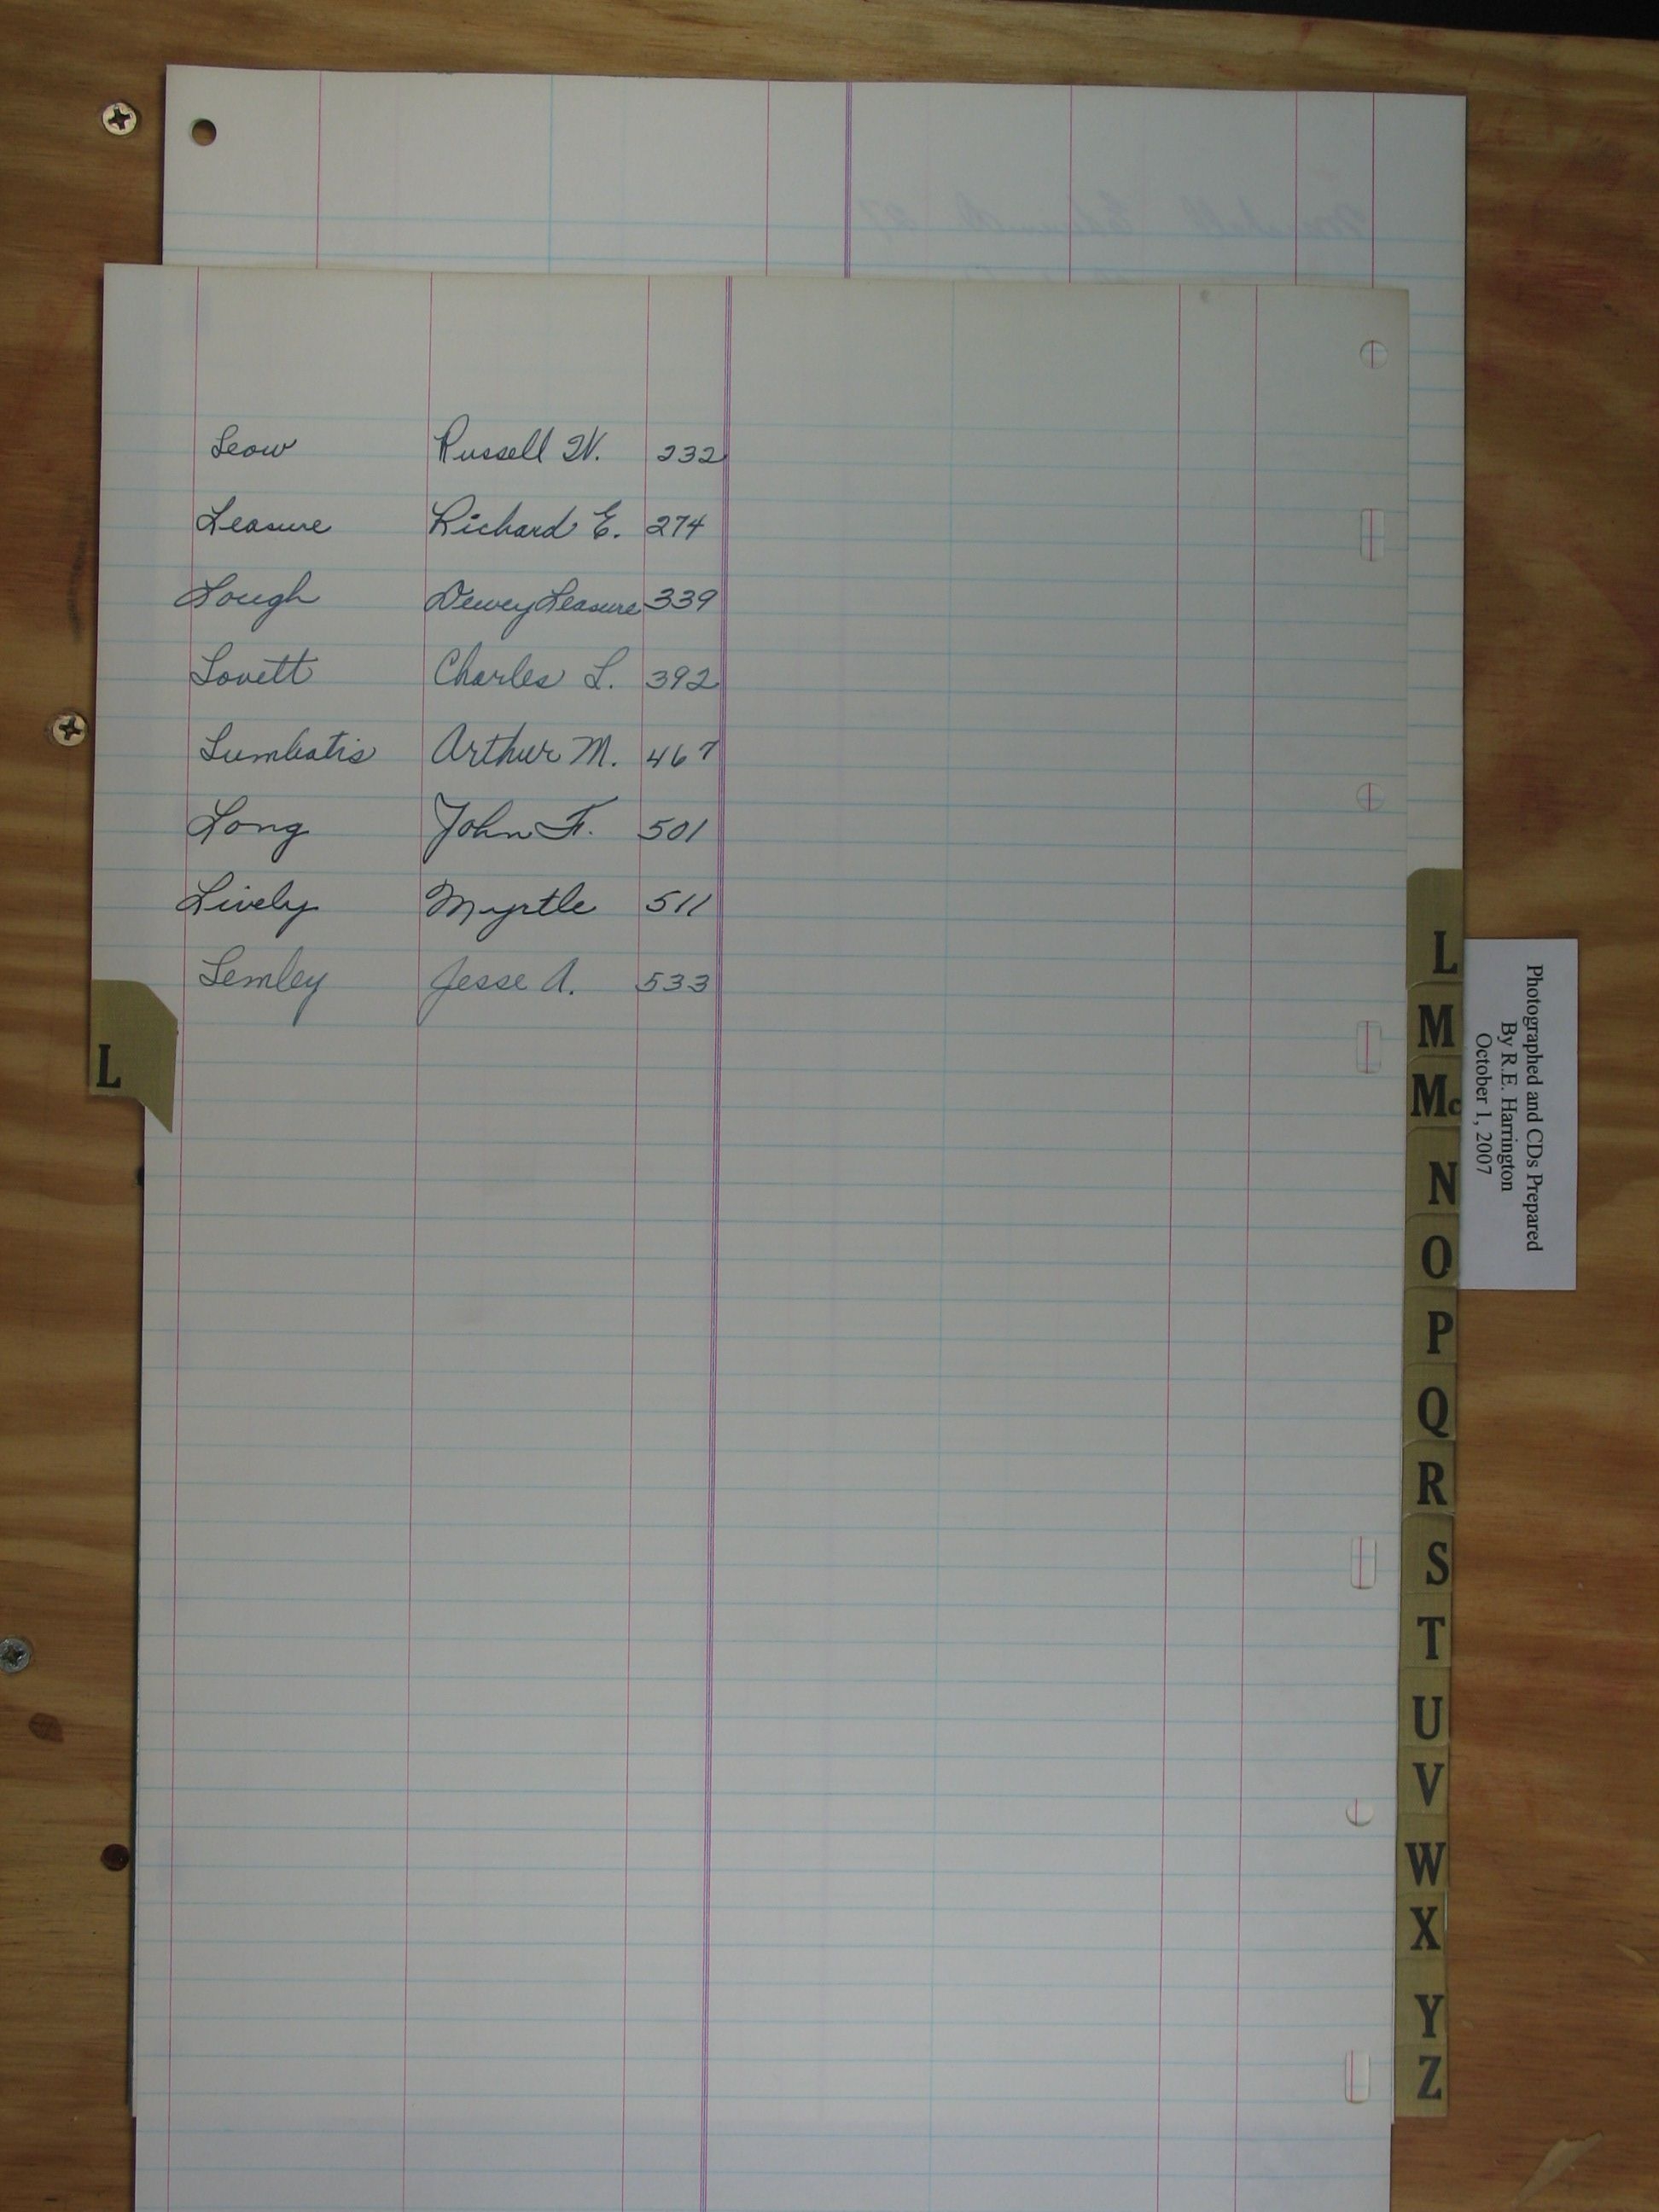 Leow Russell W. 232
Leasure Richard E. 274
Lough Dewey Leasure 339
Lovett Charles L. 392
Lumbatis Arthur M. 467
Long John F. 501
Lively Myrtle 511
Lemley Jesse A. 533
L
L
M
Mc
N
O
P
Q
R
S
T
U
V
W
X
Y
Z
Photographed and CDs Prepared
By R.E. Harrington
October 1, 2007